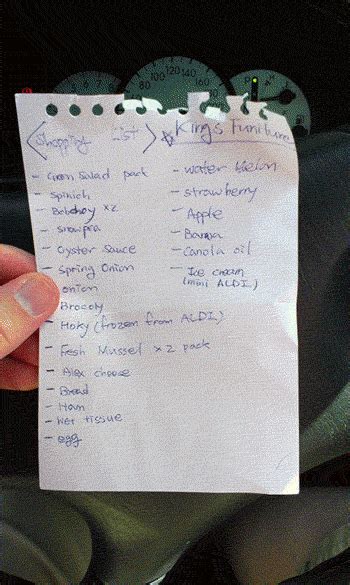 <Shopping List>
☆ King's Furniture
- Green Salad pack
- spinich
- Bobchoy x2
- snowpea
- Oyster Sauce
- Spring Onion
- onion
- Brocoly
- Hoky (frozen from ALDI)
- Fesh Mussel x 2 pack
- Alex cheese
- Bread
- Ham
- Wet tissue
- egg
- water Melon
- strawberry
- Apple
- Banna
- Canola oil
- Ice cream
(mini ALDI)